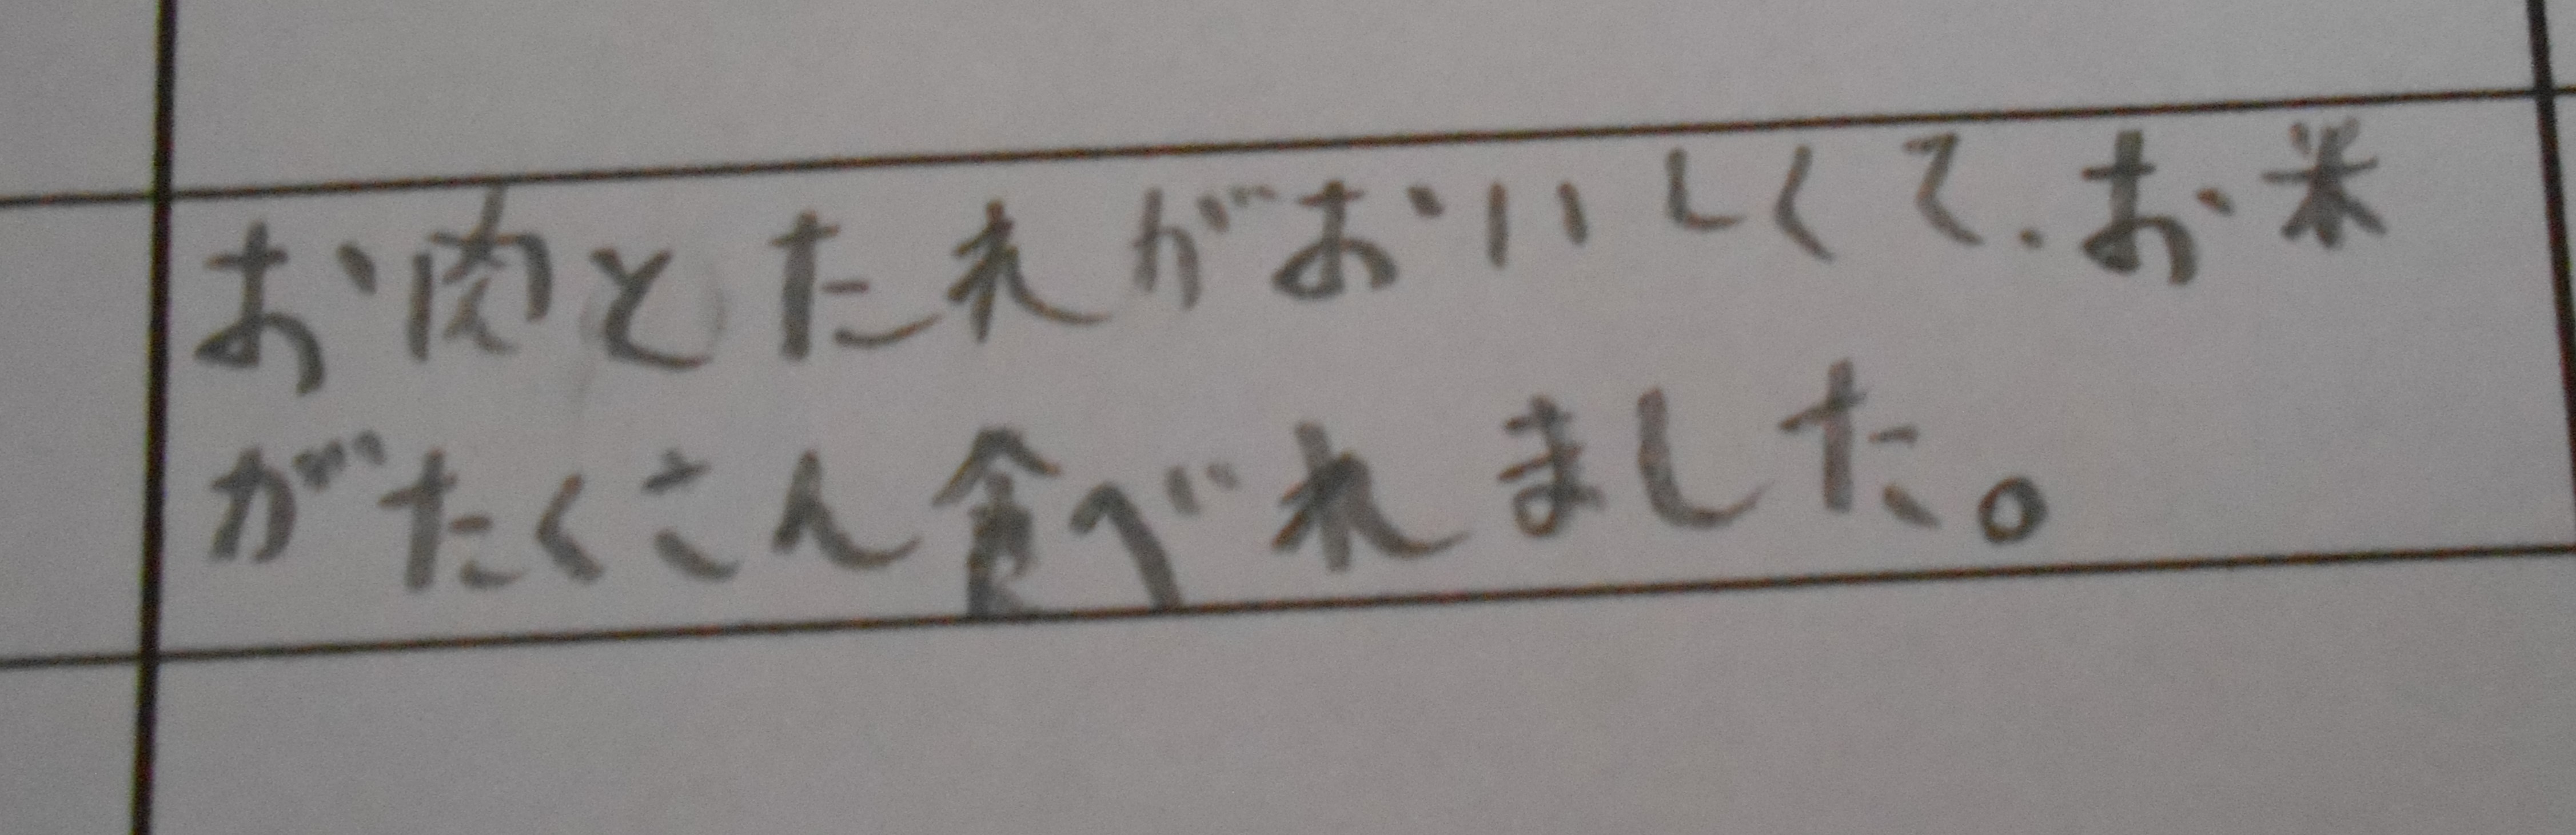 お肉とたれがおいしくて、お米
がたくさん食べれました。